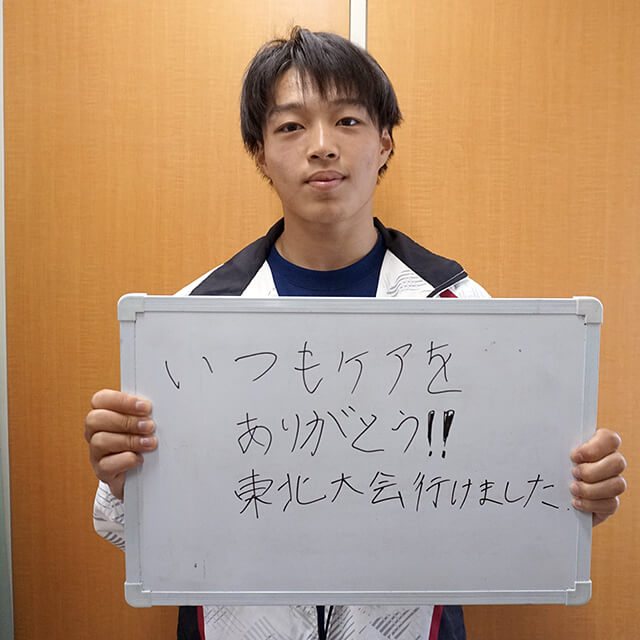 いつもケアを
ありがとう!!
東北大会行けました.